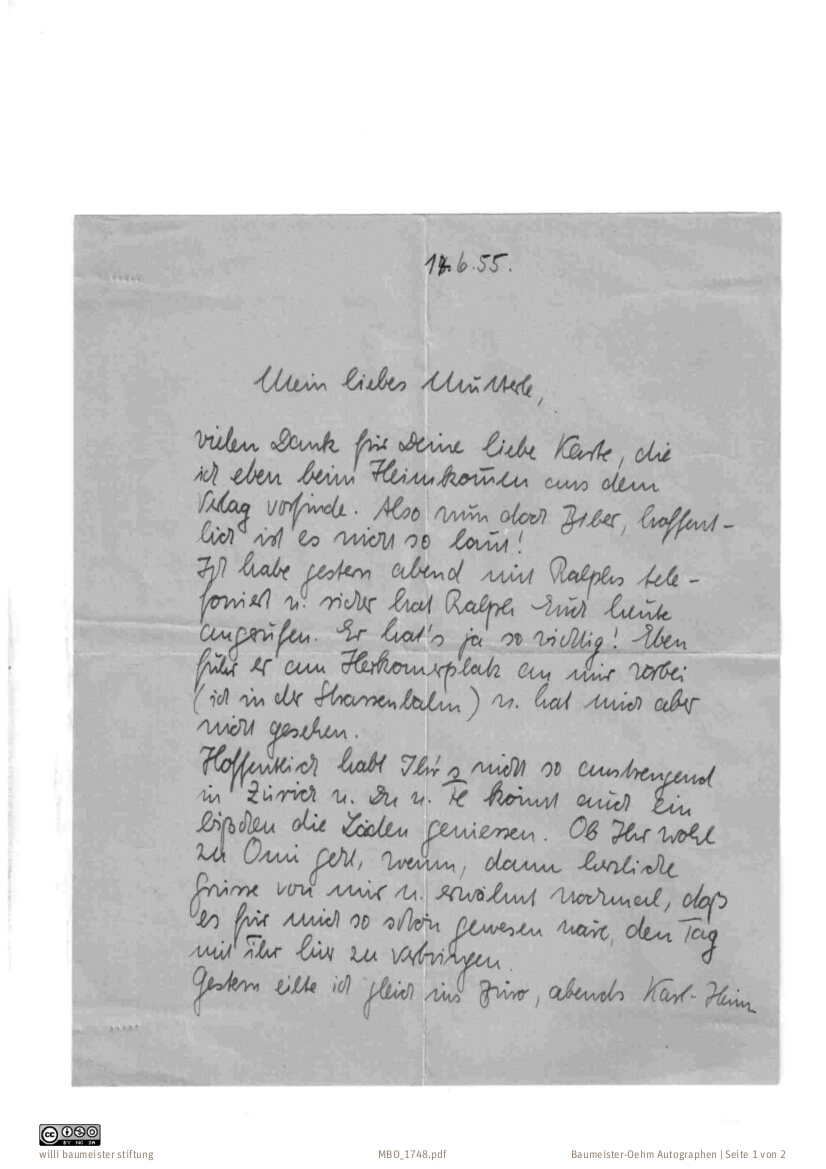 18.6.55.
Mein liebes Mütterle,
vielen Dank für Deine liebe Karte, die
ich eben beim Heimkom̅en aus dem
Verlag vorfinde. Also nun doch Biber, hoffent-
lich ist es nicht so laut!
Ich habe gestern abend mit Ralphs tele-
foniert u. sicher hat Ralph Euch heute
angerufen. Er hat's ja so wichtig! Eben
fuhr er am Herkomerplatz an mir vorbei
(ich in der Strassenbahn) u. hat mich aber
nicht gesehen.
Hoffentlich habt Ihr's nicht so anstrengend
in Zürich u. Du u. Fe könnt auch ein
bißchen die Läden geniessen. Ob Ihr wohl
zu Omi geht, wenn, dann herzliche
Grüsse von mir u. erwähnt nochmal, daß
es für mich so schön gewesen wäre, den Tag
mit ihr hier zu verbringen.
Gestern eilte ich gleich ins Büro, abends Karl-Heinz
willi baumeister stiftung
MBO_1748.pdf
Baumeister-Oehm Autographen | Seite 1 von 2